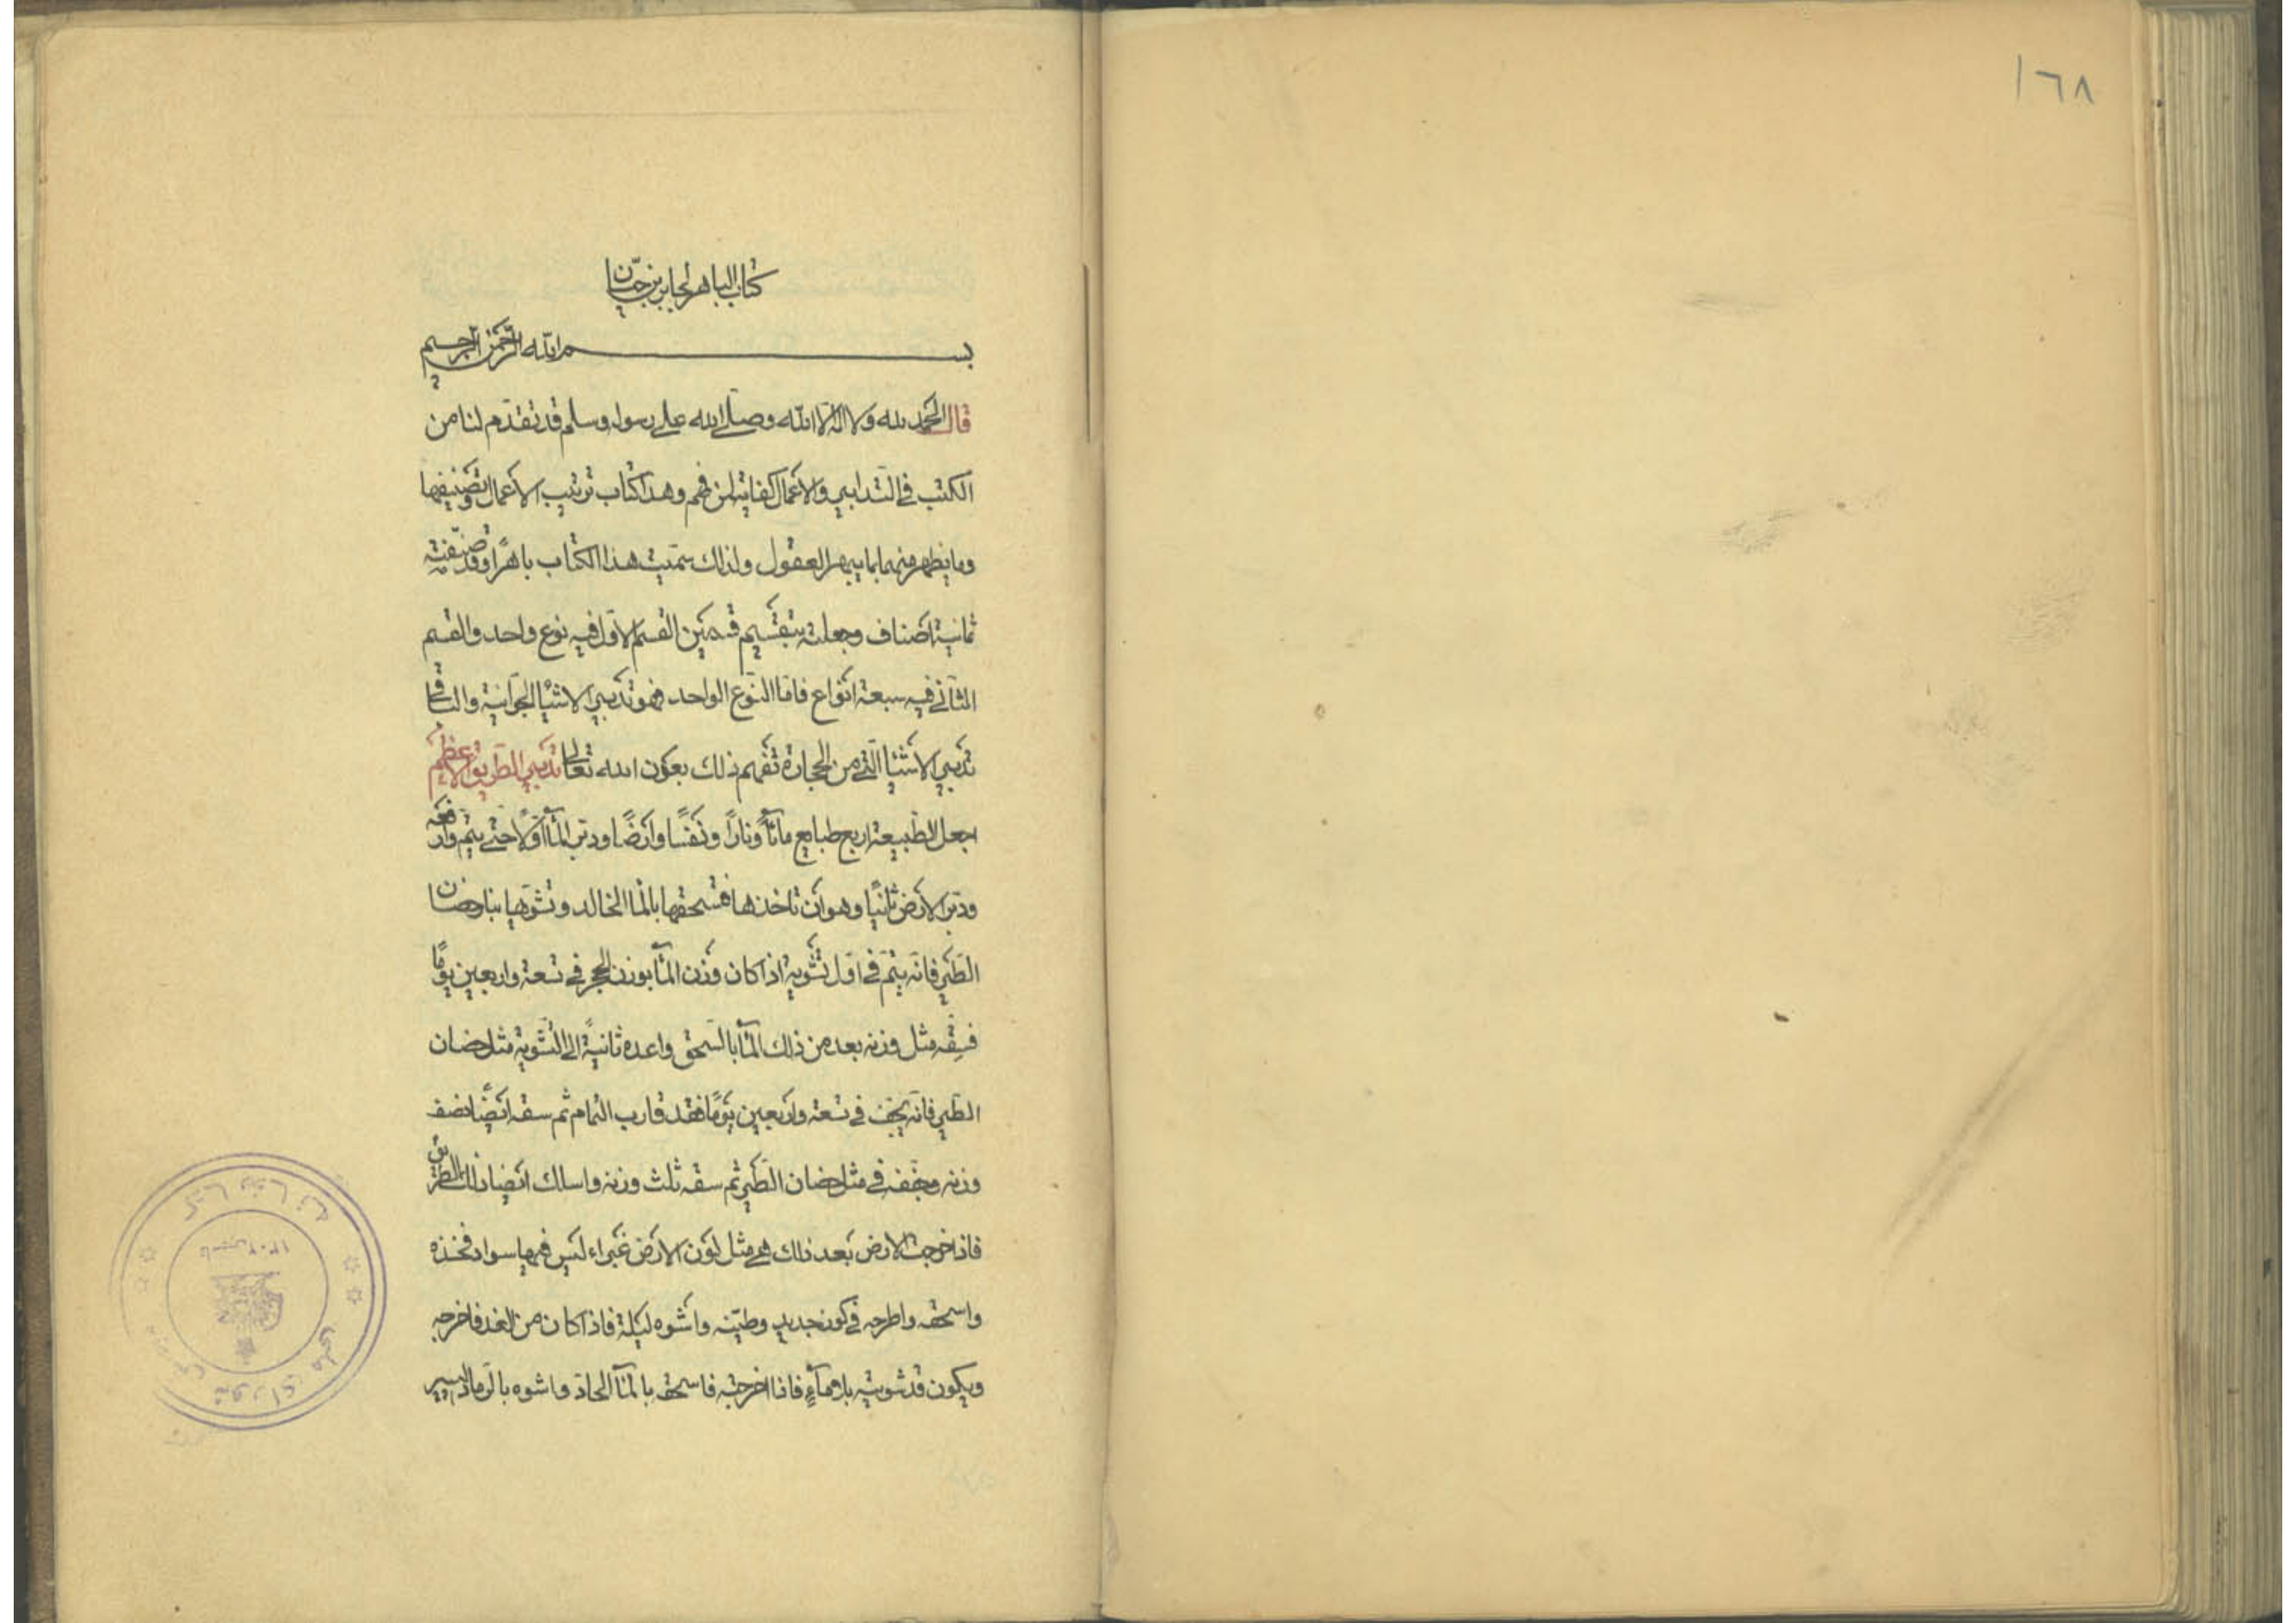 ١٦٨
كتاب الباهر لجابر بن حيّان
بسم الله الرّحمن الرّحيم
قال الحمد لله ولا اله الّا الله وصلّى الله على رسوله وسلم قد تقدّم لنا من
الكتب في التدابير والاعمال كفاية لمن فهم وهذا كتاب ترتيب الاعمال وتصنيفها
وما يظهر منها بما يبهر العقول ولذلك سمّيت هذا الكتاب باهرًا وقد صنّفته
ثمانية اصناف وجعلته بتقسيم قسمين القسم الاوّل فيه نوع واحد والقسم
الثّاني فيه سبعة انواع فامّا النّوع الواحد فهو تدبير الاشيا الجوّانية والباقي
تدبير الاشيا الّتي من الحجارة تفهم ذلك بعون الله تعالى تدبير الطّريق الاعظم
اجعل الطّبيعة اربع طبايع مآئًا ونارًا ونفسًا وارضًا ودبّر المآء اوّلًا حتّى يتمّ وارفعه
ودبّر الارض ثانيًا وهو ان تاخذها فتسحقها بالمآ الخالد وتشوّيها بنار حضان
الطّير فانّه يتمّ في اوّل تشوية اذا كان وزن المآء بوزن الحجر في تسعة واربعين يومًا
فسقه مثل وزنه بعد من ذلك المآء بالسّحق واعده ثانيةً الى التّشوية مثل حضان
الطّير فانّه يجفّ في تسعة واربعين يومًا فقد قارب التمام ثم سقه ايضًا نصف
وزنه وجفّفه في مثل حضان الطّير ثم سقه ثلث وزنه واسلك ايضًا ذلك الطّريق
فاذا خرجت الارض بعد ذلك هي مثل لون الارض غبراء ليس فيها سواد فخذه
واسحقه واطرحه في كوز جديد وطيّنه واشوه ليلة فاذا كان من الغد فاخرجه
ويكون قد شويته بلا مآءٍ فاذا اخرجته فاسحقه بالمآ الحادّ واشوه بالرّماد اليسير
كتابخانه
مجلس شورای ملی